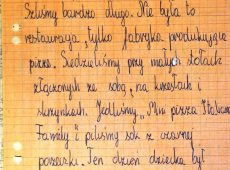 Szliśmy bardzo długo. Nie była to
restauracja tylko fabryka produkująca
pizze. Siedzieliśmy przy małych stołach
złączonych ze sobą, na krzesłach i
skrzynkach. Jedliśmy „Mini pizza Italiana
Family" i piliśmy sok z czarnej
porzeczki. Ten dzień dziecka był